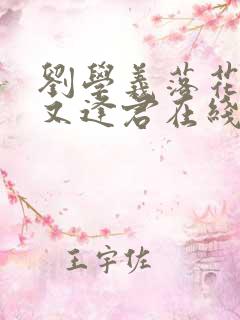 劉學義落花
又逢君在綫
王宇佐